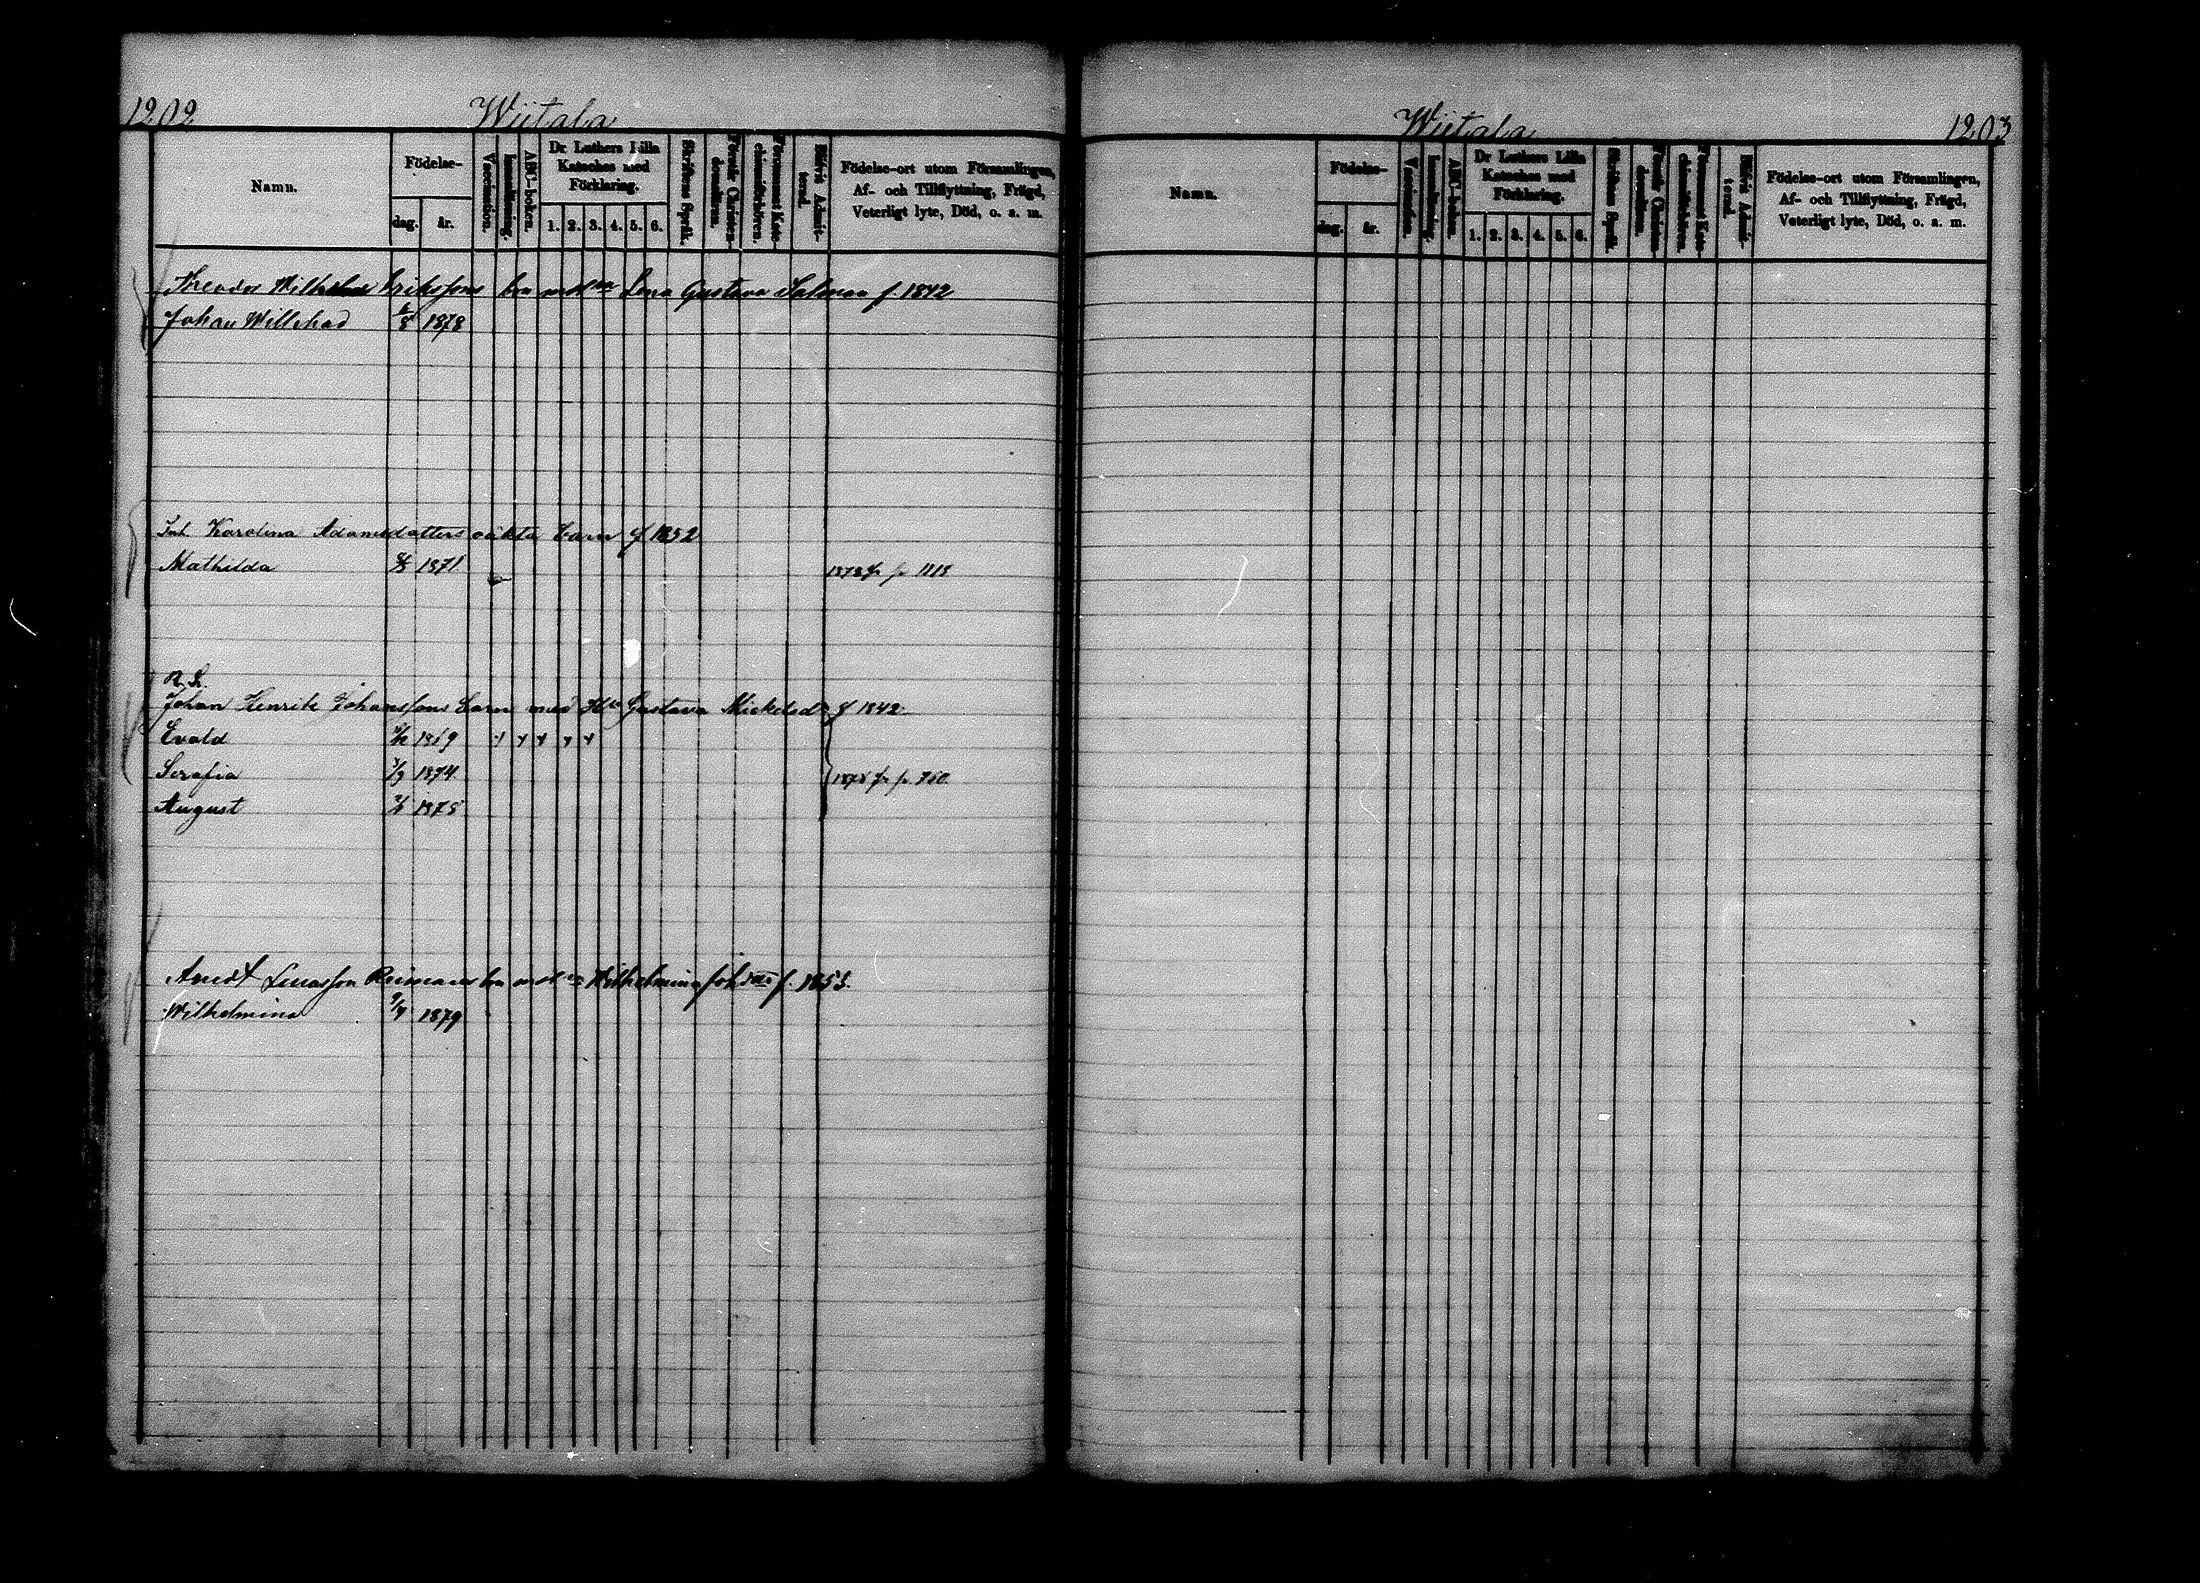 1202
Wiitala
Namn.
Födelse-
dag.
år.
Vaccination.
Innanläsning.
ABC-boken.
Dr Luthers Lilla
Kateches med
Förklaring.
1. 2. 3. 4. 5. 6.
Skriftens Språk.
Förstår Christen-
domsläran.
Försummat Kate-
chismiförhören.
Blifvit Admit-
terad.
Födelse-ort utom Församlingen,
Af- och Tillflyttning, Frägd,
Veterligt lyte, Död, o. s. m.
Wilhelm Erikssons bn Lena Gustava Salomon f. 1842
Johan Willehad 1878
Inh. Karolina Adamsdotters oäkta barn f 1852
Mathilda 1871 1878 fr p 1118
Johan Henrik Johanssons barn med Hu Gustava Mickelsd f 1842
Evald 1869
Serafia 1874 1878 fr p. 760
August 1875
Reimans bn Wilhelmina f.
Wilhelmina 1879
Wiitala
1203
Namn.
Födelse-
dag.
år.
Vaccination.
Innanläsning.
ABC-boken.
Dr Luthers Lilla
Kateches med
Förklaring.
1. 2. 3. 4. 5. 6.
Skriftens Språk.
Förstår Christen-
domsläran.
Försummat Kate-
chismiförhören.
Blifvit Admit-
terad.
Födelse-ort utom Församlingen,
Af- och Tillflyttning, Frägd,
Veterligt lyte, Död, o. s. m.